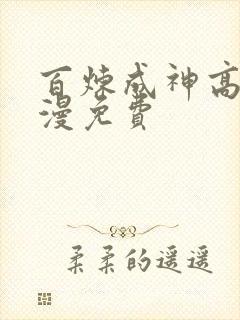 百炼成神高
漫免费
柔柔的遥遥